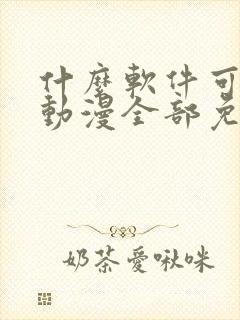 什麼軟件可
動漫全部免
奶茶愛啾咪